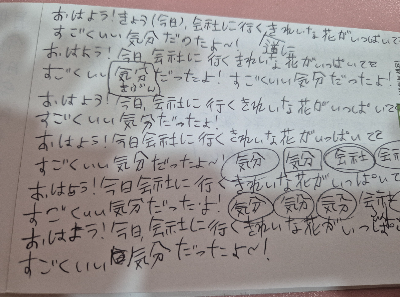 おはよう!きょう(今日)、会社に行くきれいな花がいっぱいで
すごくいい気分だのたよ〜! 道に
おはよう!今日、会社に行くきれいな花がいっぱいでを
すごくいい気分だったよ!すごくいい気分だったよ!
きぶん
おはよう!今日、会社に行くきれいな花がいっぱいで
すごくいい気分だったよ!
おはよう!今日会社に行くきれいな花がいっぱいでを
すごくいい気分だったよ〜 気分 気分 会社
おはよう!今日会社に行くきれいな花がいっぱいで
すごくいい気分だったよ! 気分 気分 気分 会社
おはよう!今日、会社に行くきれいな花がいっぱいで
すごくいい気分だったよ〜!